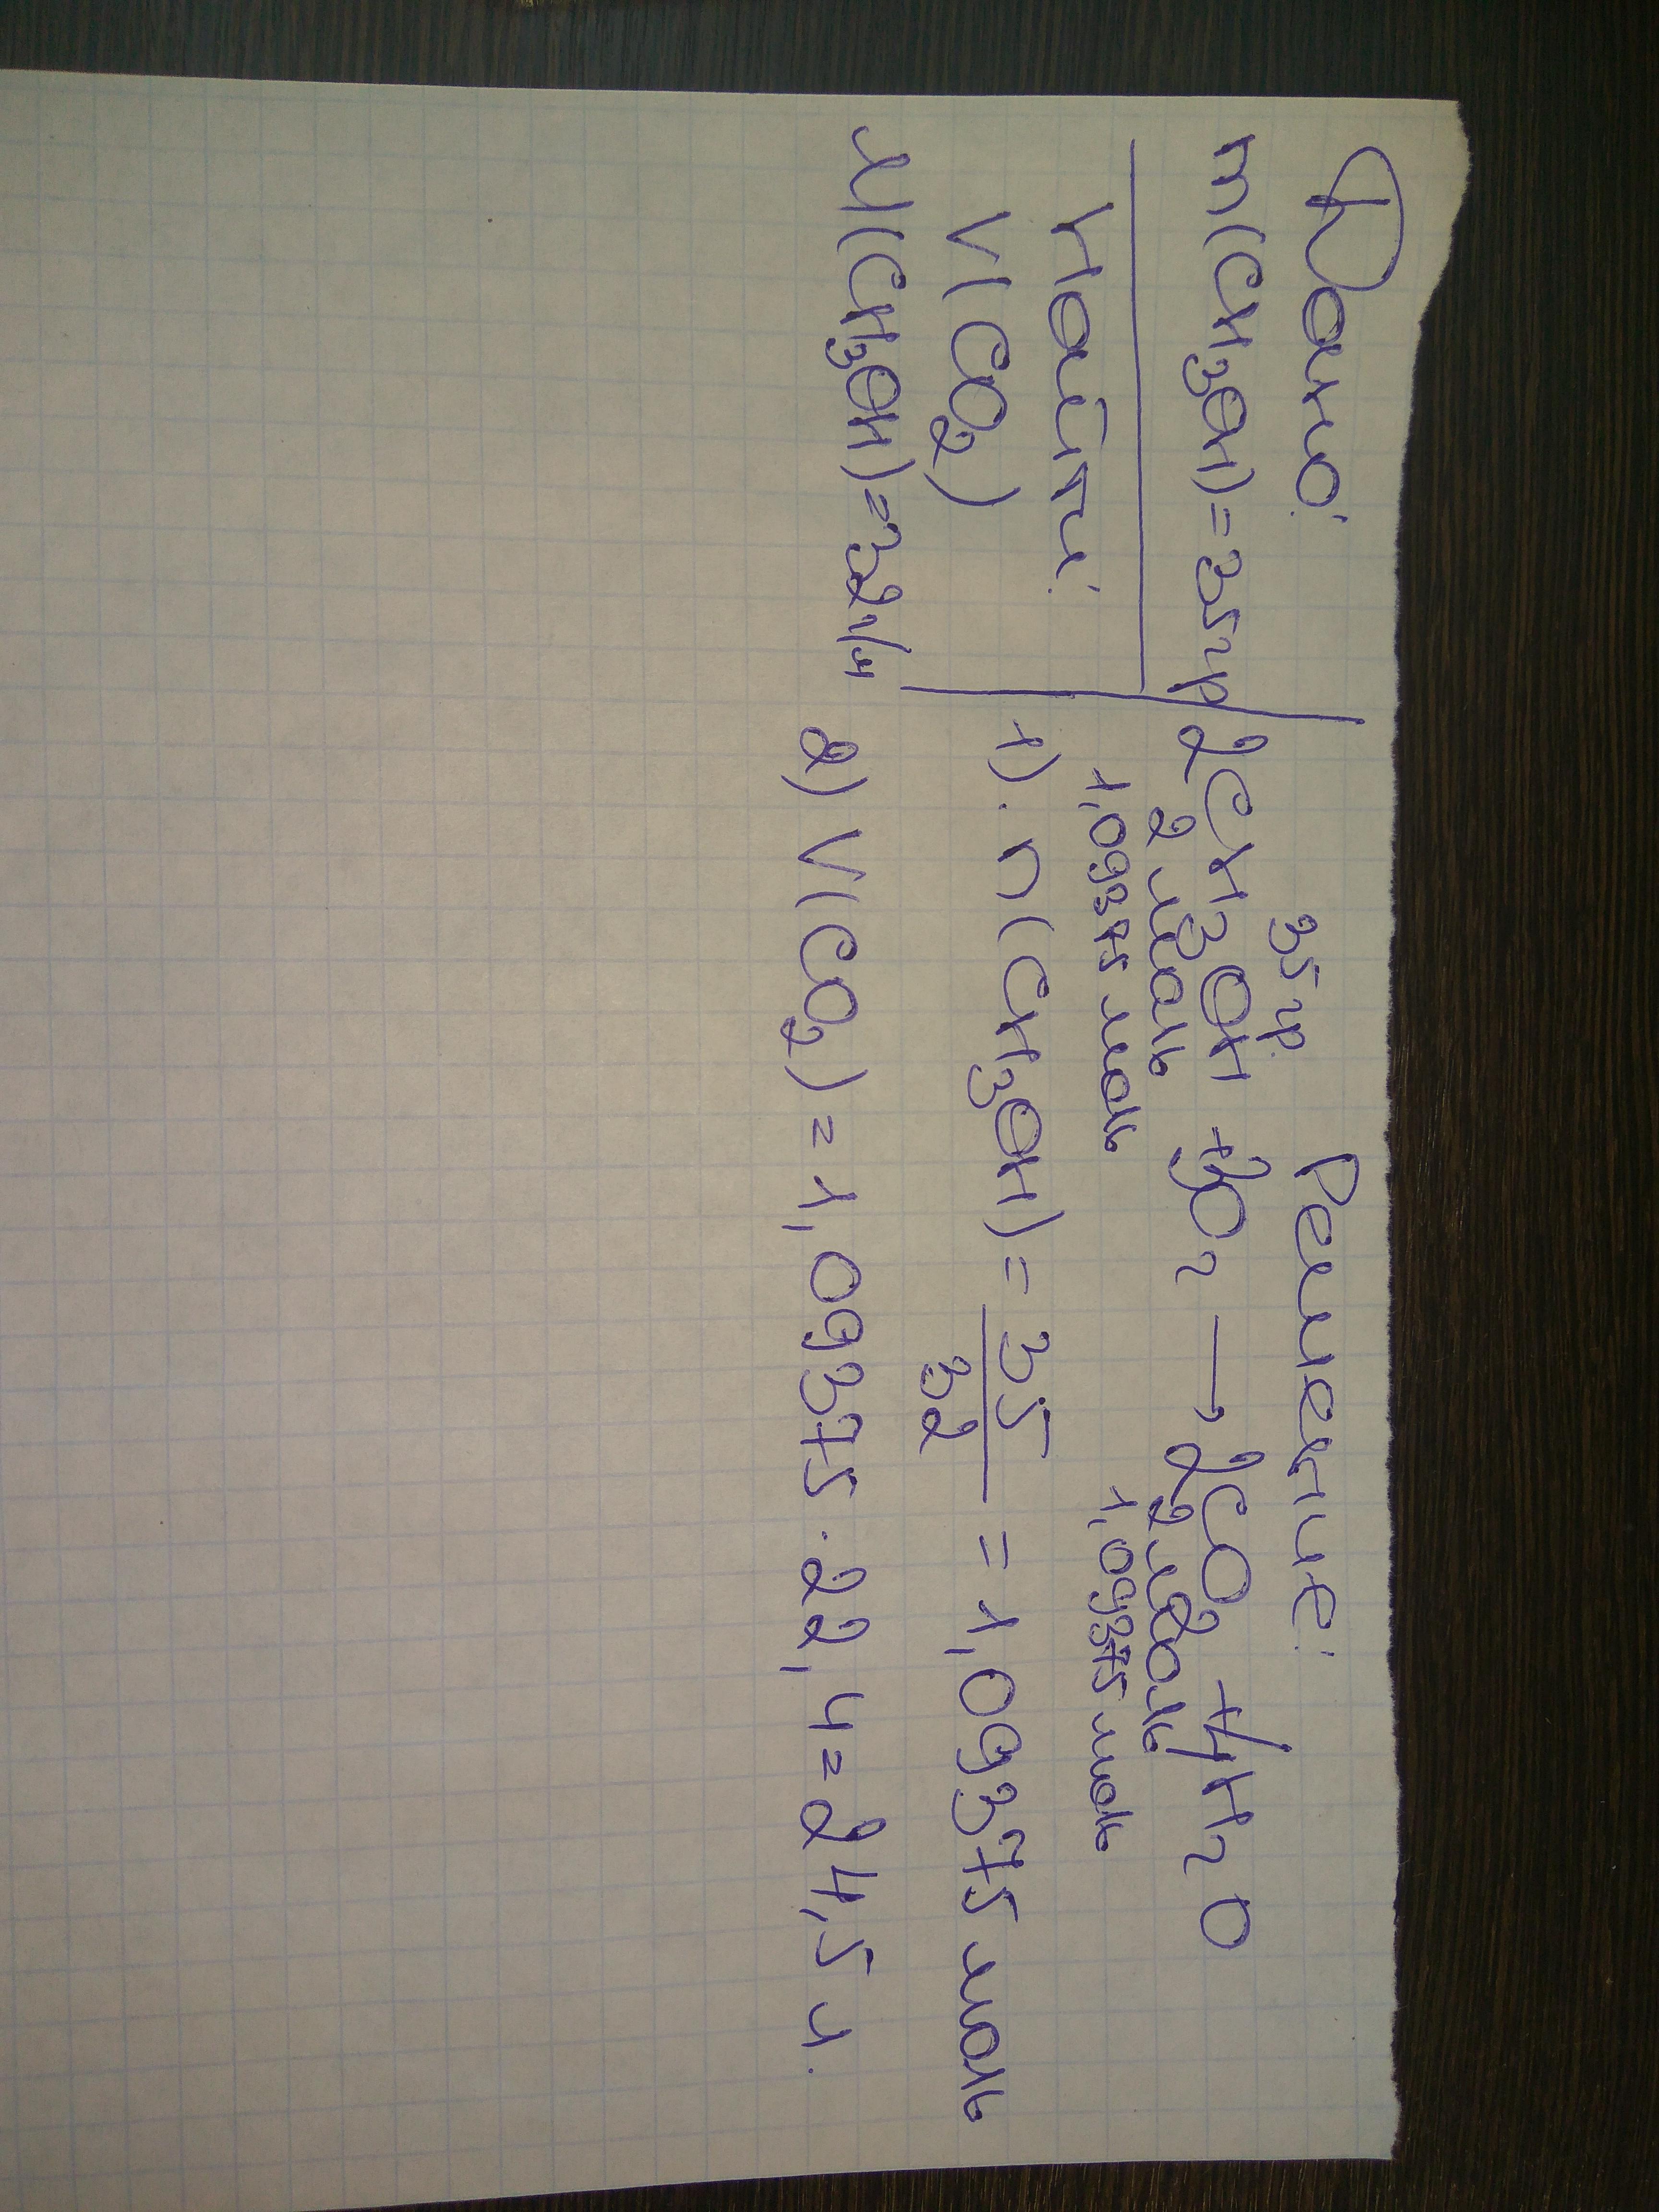 Дано:
m(CH3OH)=35гр
Найти:
V(CO2)
M(CH3OH)=32г/м
Решение:
35гр.
2CH3OH +3O2 → 2CO2 +4H2O
2 моль 2 моль
1,09375 моль 1,09375 моль
1). n(CH3OH) = 35/32 = 1,09375 моль
2) V(CO2) = 1,09375 · 22,4 = 24,5 л.